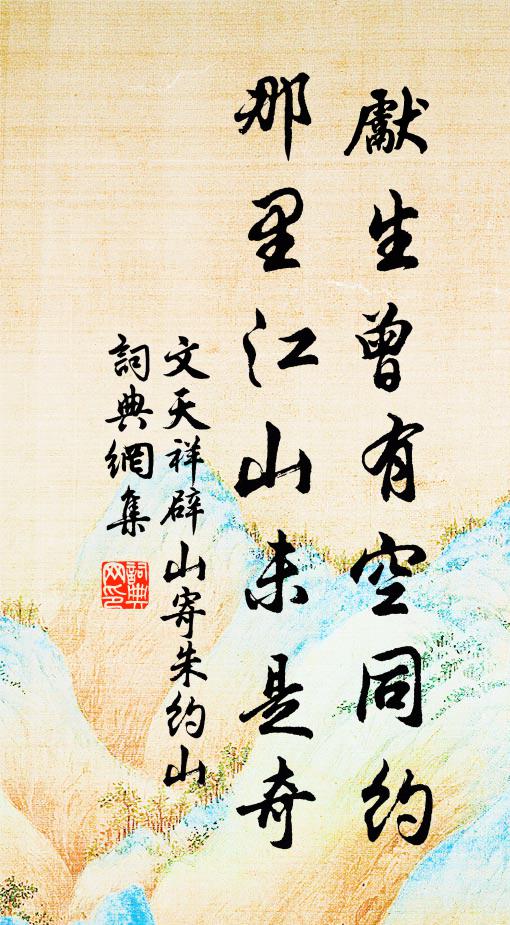 獻生曾有空同約
那里江山未是奇
文天祥辟山寄朱約山
詞典網集
詞典
网印